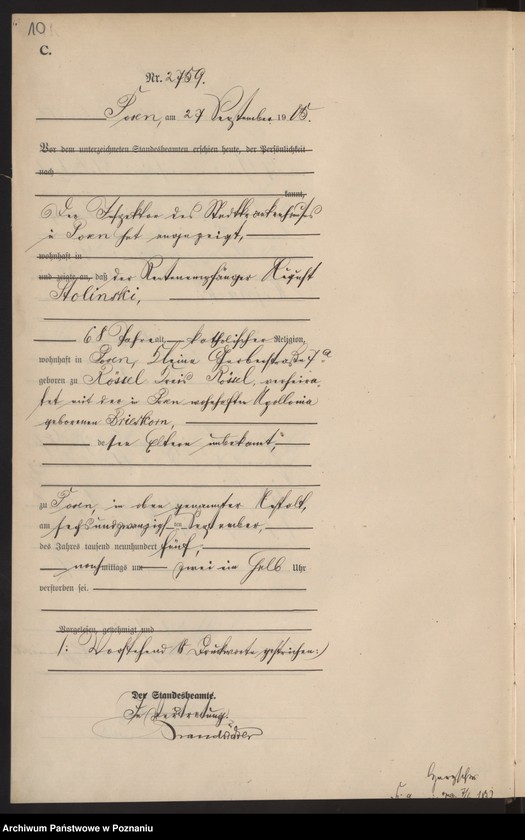 10
C.
Nr. 2759.
Posen, am 27 September 1905.
Vor dem unterzeichneten Standesbeamten erschien heute, der Persönlichkeit
nach
kannt,
Der Inspektor des Stadtkrankenhauses
in Posen hat angezeigt,
wohnhaft in
und zeigte an, daß der Rentenempfänger August
Stolinski,
68 Jahre alt, katholischer Religion,
wohnhaft in Posen, Kleine Gerberstraße 7a
geboren zu Rössel Kreis Rössel, verheira-
tet mit der in Posen wohnhaften Apollonia
geborenen Brieskorn,
dessen Eltern unbekannt,
zu Posen, in oben genannter Anstalt,
am sechsundzwanzigsten September,
des Jahres tausend neunhundert fünf,
nachmittags um zwei ein halb Uhr
verstorben sei.
Vorgelesen, genehmigt und
/: Vorstehend Druckworte gestrichen :/
Der Standesbeamte.
In Vertretung
Archiwum Państwowe w Poznaniu